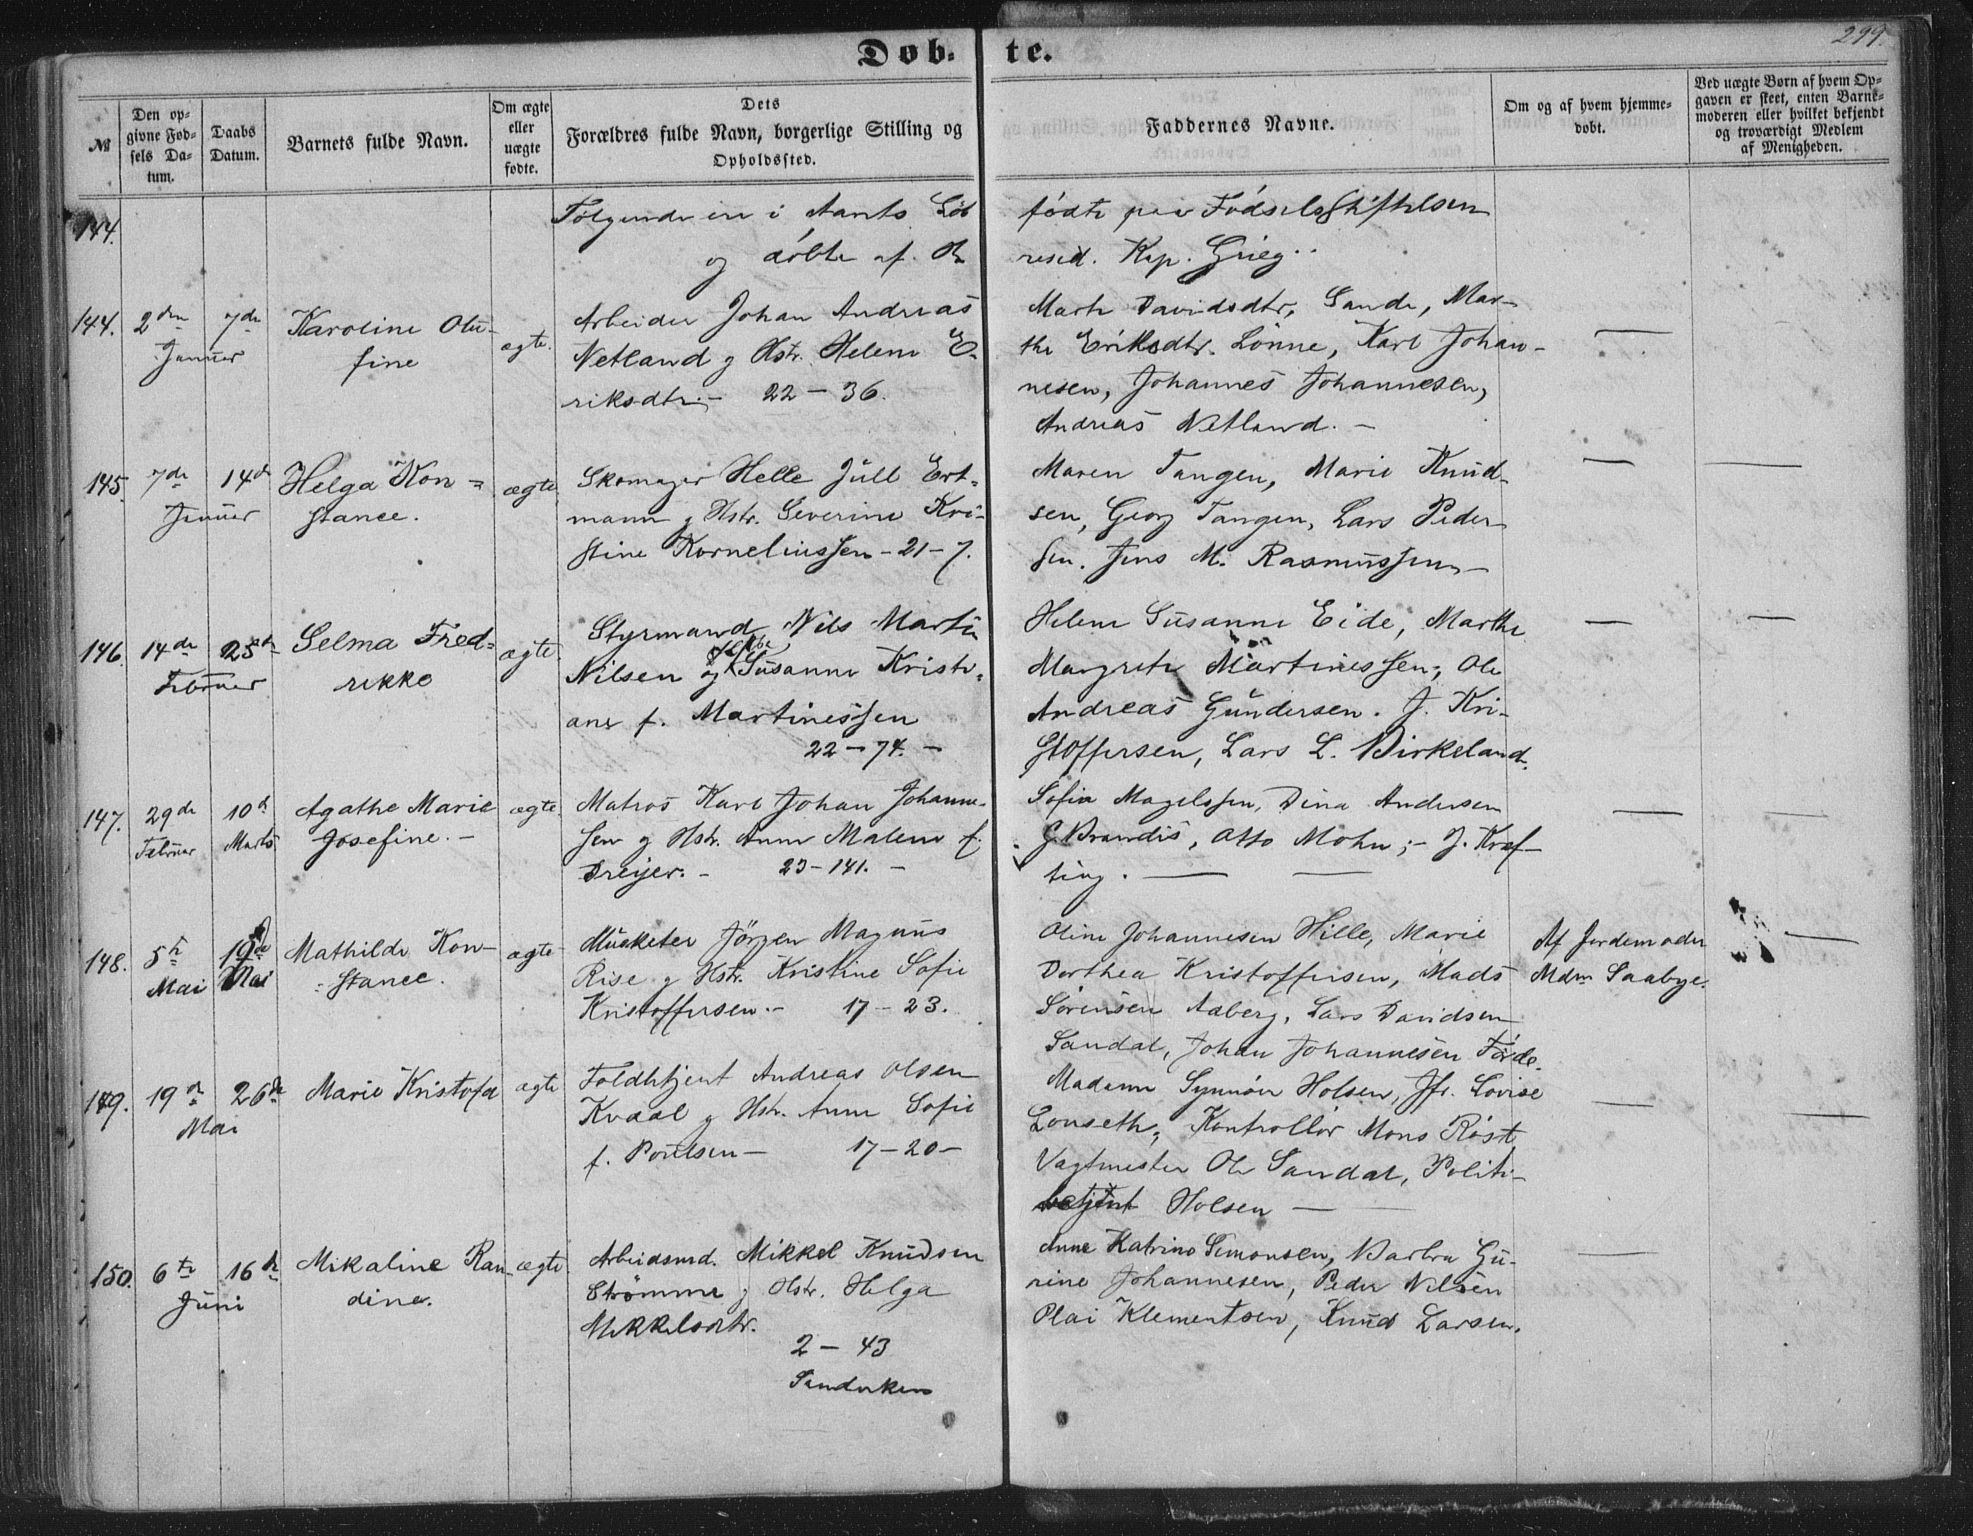 299.
Døb- te.
№
Den op-
givne Fød-
sels Da-
tum.
Daabs
Datum.
Barnets fulde Navn.
Om ægte
eller
uægte
fødte.
Dets
Forældres fulde Navn, borgerlige Stilling og
Opholdssted.
Faddernes Navne.
Om og af hvem hjemme-
døbt.
Ved uægte Børn af hvem Op-
gaven er skeet, enten Barne-
moderen eller hvilket bekjendt
og troværdigt Medlem
af Menigheden.
144.
Følgende ere i Aarets Løb fødte paa Fødselsstiftelsen
og døbte af resid. Kap. Grieg.
144.
2den
Januar
7de
Karoline Olu-
fine
ægte.
Arbeider Johan Andreas
Netland g Hstr. Helene E-
riksdtr. – 22 – 36.
Marte Davidsdtr. Sande, Mar-
the Eriksdtr. Lönne, Karl Johan-
nesen, Johannes Johannesen,
Andreas Netland. –
145
7de
Januar
14d
Helga Kon=
stance.
ægte
Skomager Helle Jull Ert-
mann g Hstr. Severine Kri-
stine Kornelinssen – 21 – 7.
Maren Tangen, Marie Knud-
sen, Georg Tangen, Lars Peder-
sen. Jens M. Rasmussen –
146.
14de
Februar
25de
Selma Fred-
rikke
ægte.
Styrmand Nils Martin
Nilsen g Susanne Kristi-
ane f. Martinessen
22 – 74. –
Helene Susanne Eide, Marthe
Margrete Martinessen, Ole
Andreas Gundersen. J. Kri-
stoffersen, Lars L. Birkeland.
147.
29de
Februar
10d
Marts
Agathe Marie
Josefine. –
ægte
Matros Karl Johan Johanne-
sen g Hstr. Anne Malene f.
Dreijer. – 23 – 141. –
Sofia Magelssen, Dina Andersen
G. Brandis, Otto Mohn; – J. Kraf-
ting.
148.
5te
Mai
19de
Mai
Mathilde Kon-
stance.
ægte
Musketer Jörgen Magnus
Rise g Hstr. Kristine Sofie
Kristoffersen. – 17 – 23.
Oline Johannesen Hille, Marie
Dorthea Kristoffersen, Mads
Sörensen Aaberg, Lars Davidsen
Sandal, Johan Johannesen Förde.
Af Jordemoder
Mdm Saabye.
149.
19d
Mai
26de
Marie Kristofa
ægte
Toldbtjent Andreas Olsen
Kvaal g Hstr. Anne Sofie
f. Poulsen – 17 – 20 –
Madame Synnöve Holsen, Jfr. Lovise
Lonseth, Kontrollör Mons Röst
Vagtmester Ole Sandal, Politi-
betjent Holsen –
150.
6te
Juni
16de
Mikaline Ran-
dine.
ægte
Arbeidsmd. Mikkel Knudsen
Strömme g Hstr. Helga
Mikkelsdtr.
2 – 43
Sandviken
Anne Katrine Simonsen, Barbra Gu-
rine Johannesen, Peder Nilsen
Olai Klementsen, Knud Larsen.